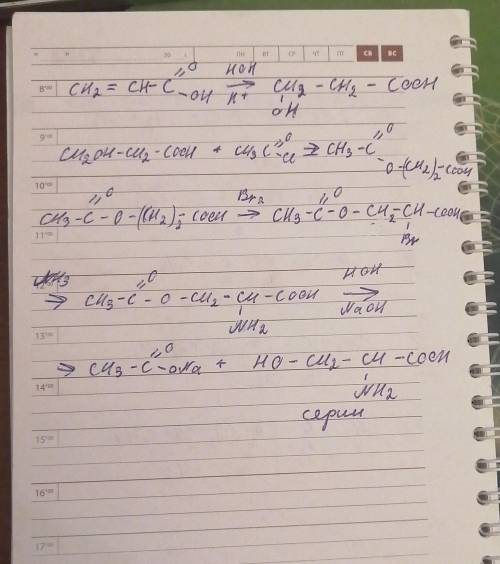 ПН ВТ СР ЧТ ПТ СБ ВС
8:00
CH2 = CH - C =O - OH HOH H+ → CH2 - CH2 - COOH
OH
9:00
CH2OH-CH2-COOH + CH3C =O - Cl → CH3 - C =O
O-(CH2)2-COOH
10:00
CH3 - C =O - O - (CH2)2 - COOH Br2 → CH3 - C =O - O - CH2 - CH - COOH
Br
11:00
NH3
→ CH3 - C =O - O - CH2 - CH - COOH HOH NaOH →
NH2
13:00
→ CH3 - C =O - ONa + HO - CH2 - CH - COOH
NH2
14:00
серин
15:00
16:00
17:00